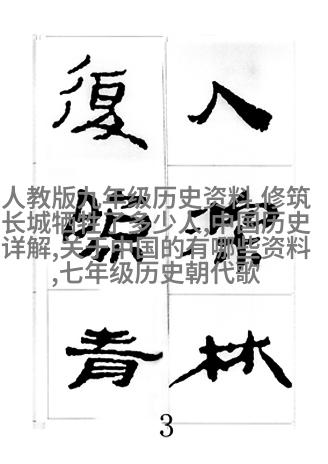 入林
復青
人教版九年级历史资料,修筑
长城牺牲了多少人,中国历史
详解,关于中国的有哪些资料
,七年级历史朝代歌
3